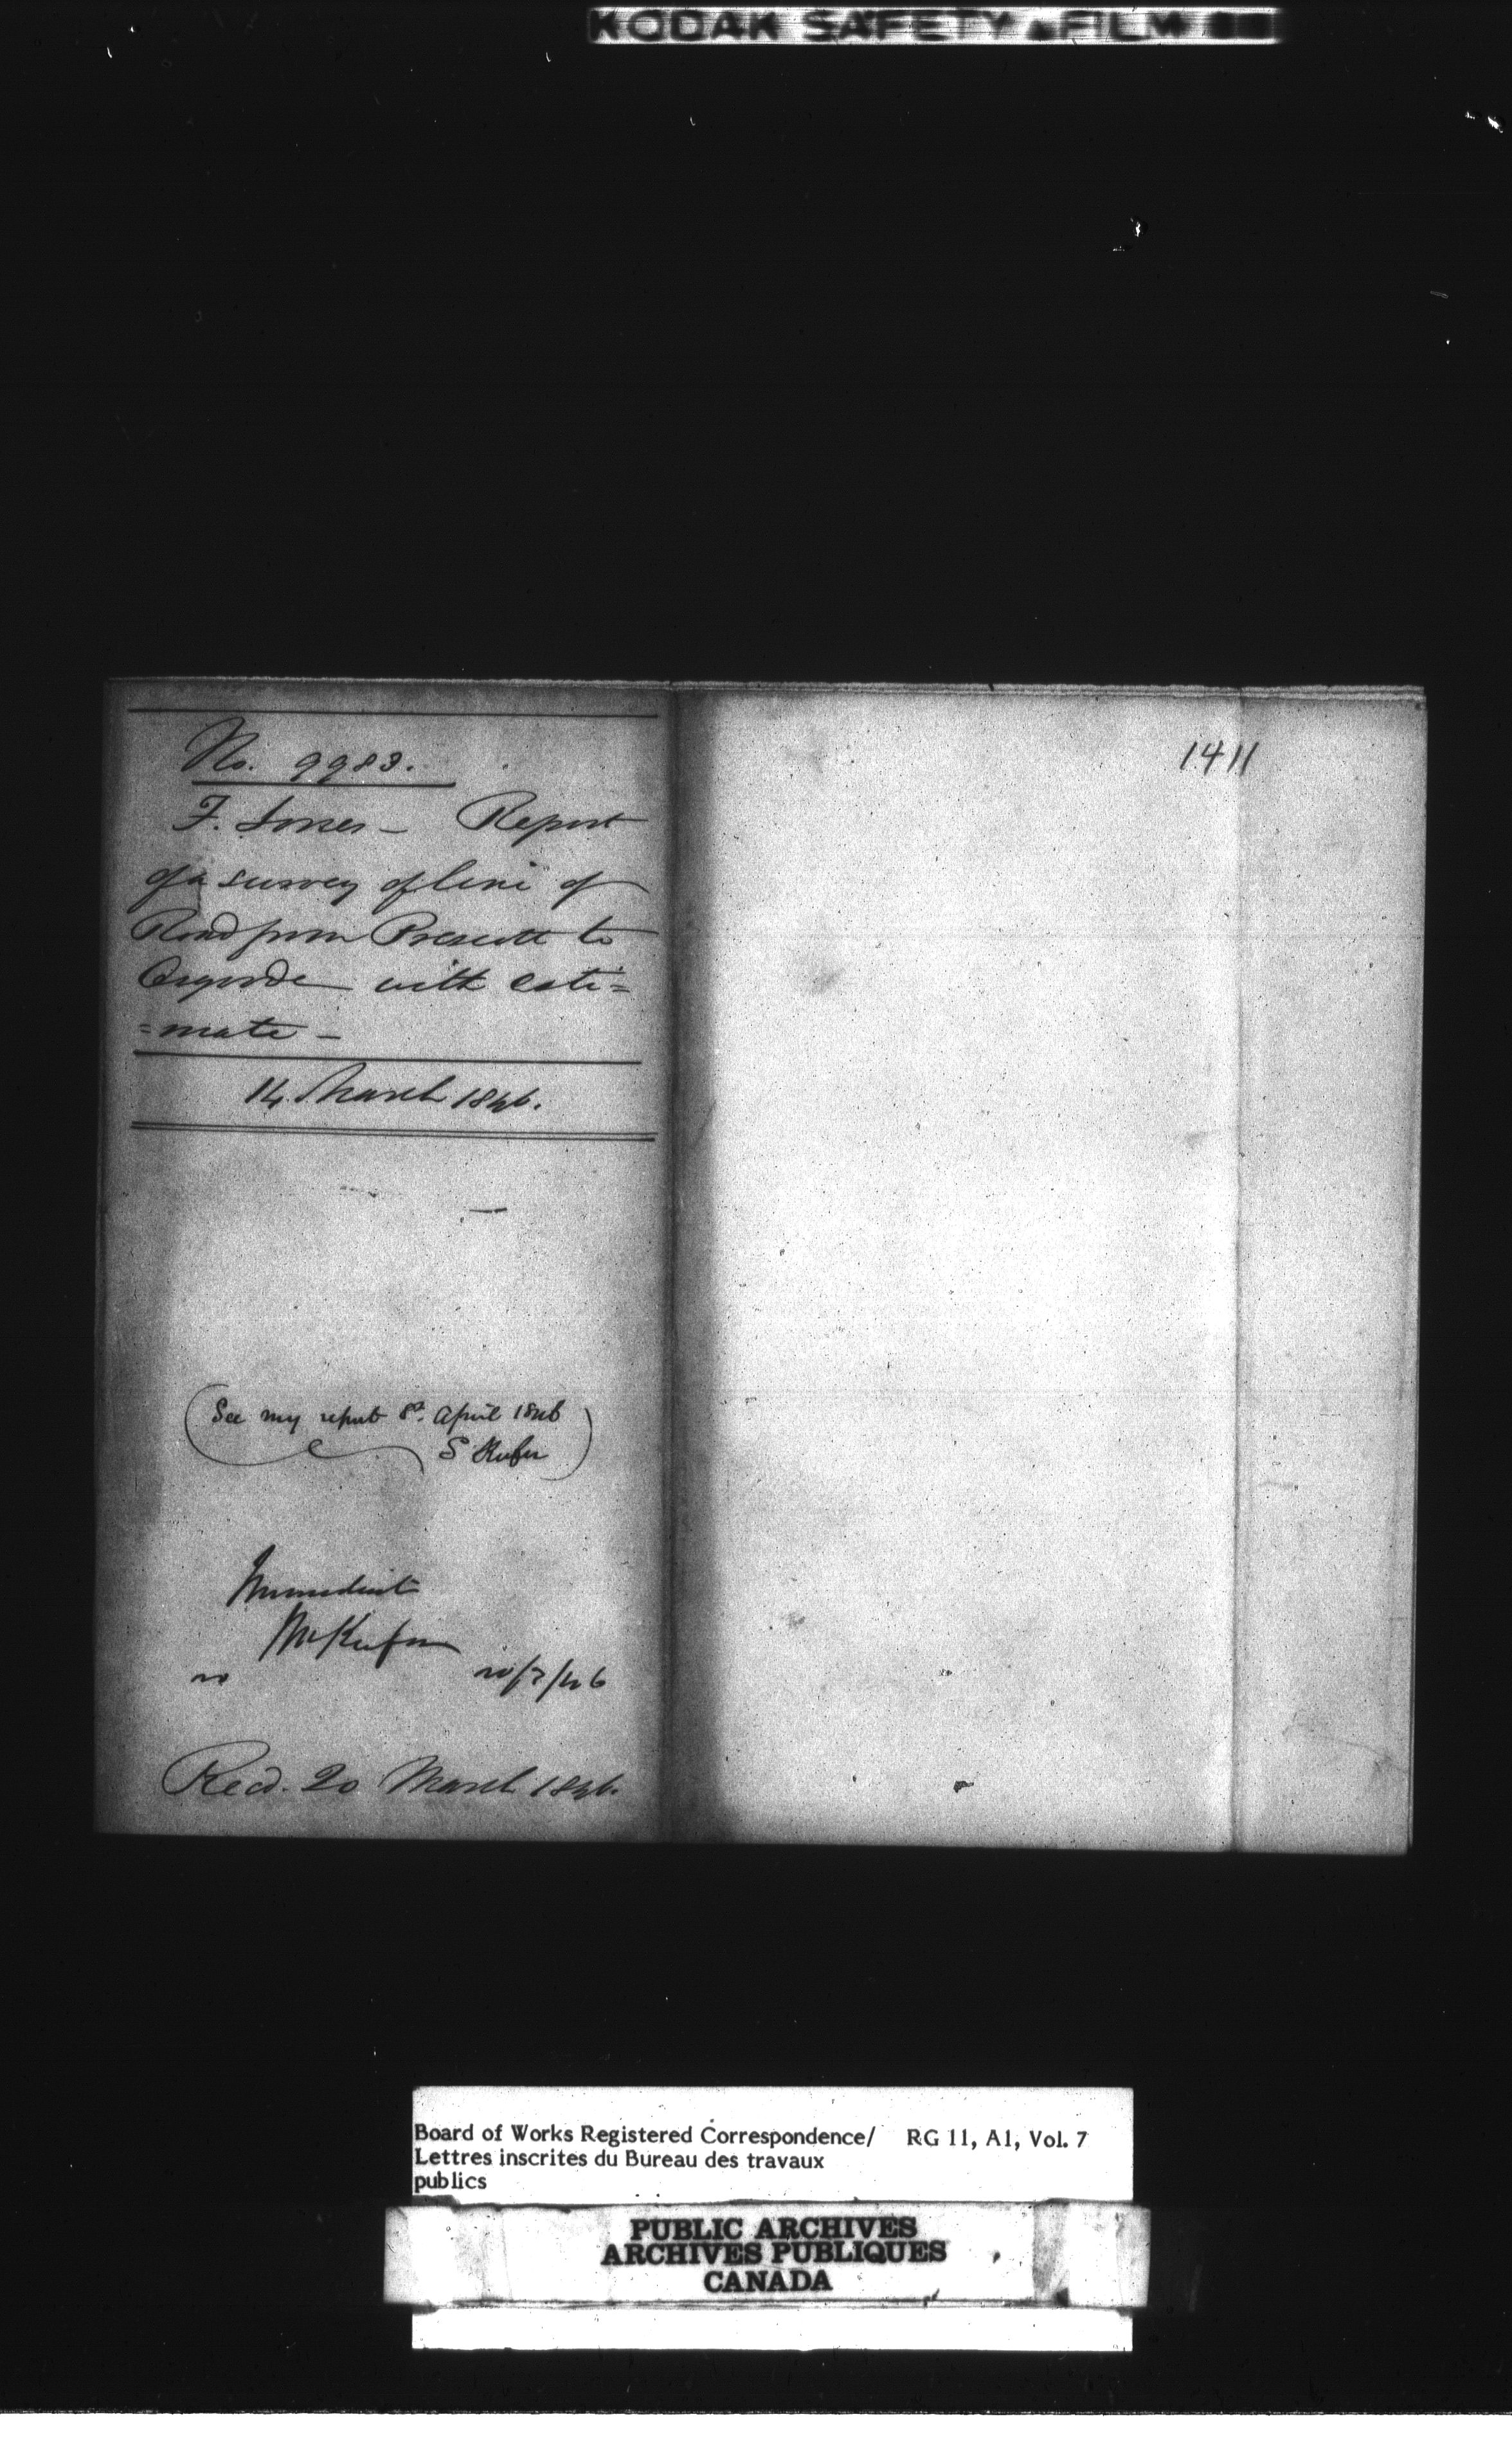 KODAK SAFETY FILM
No. 9983.
F. Jones - Report
of a survey of line of
Road from Prescott to
Osgoode with esti=
=mate -
14 March 1846.
(See my report 8th. April 1846
S Keefer)
Immediate
Mr Keefer
20/3/46
Recd. 20 March 1846.
1411
Board of Works Registered Correspondence/ RG 11, A1, Vol. 7
Lettres inscrites du Bureau des travaux
publics
PUBLIC ARCHIVES
ARCHIVES PUBLIQUES
CANADA